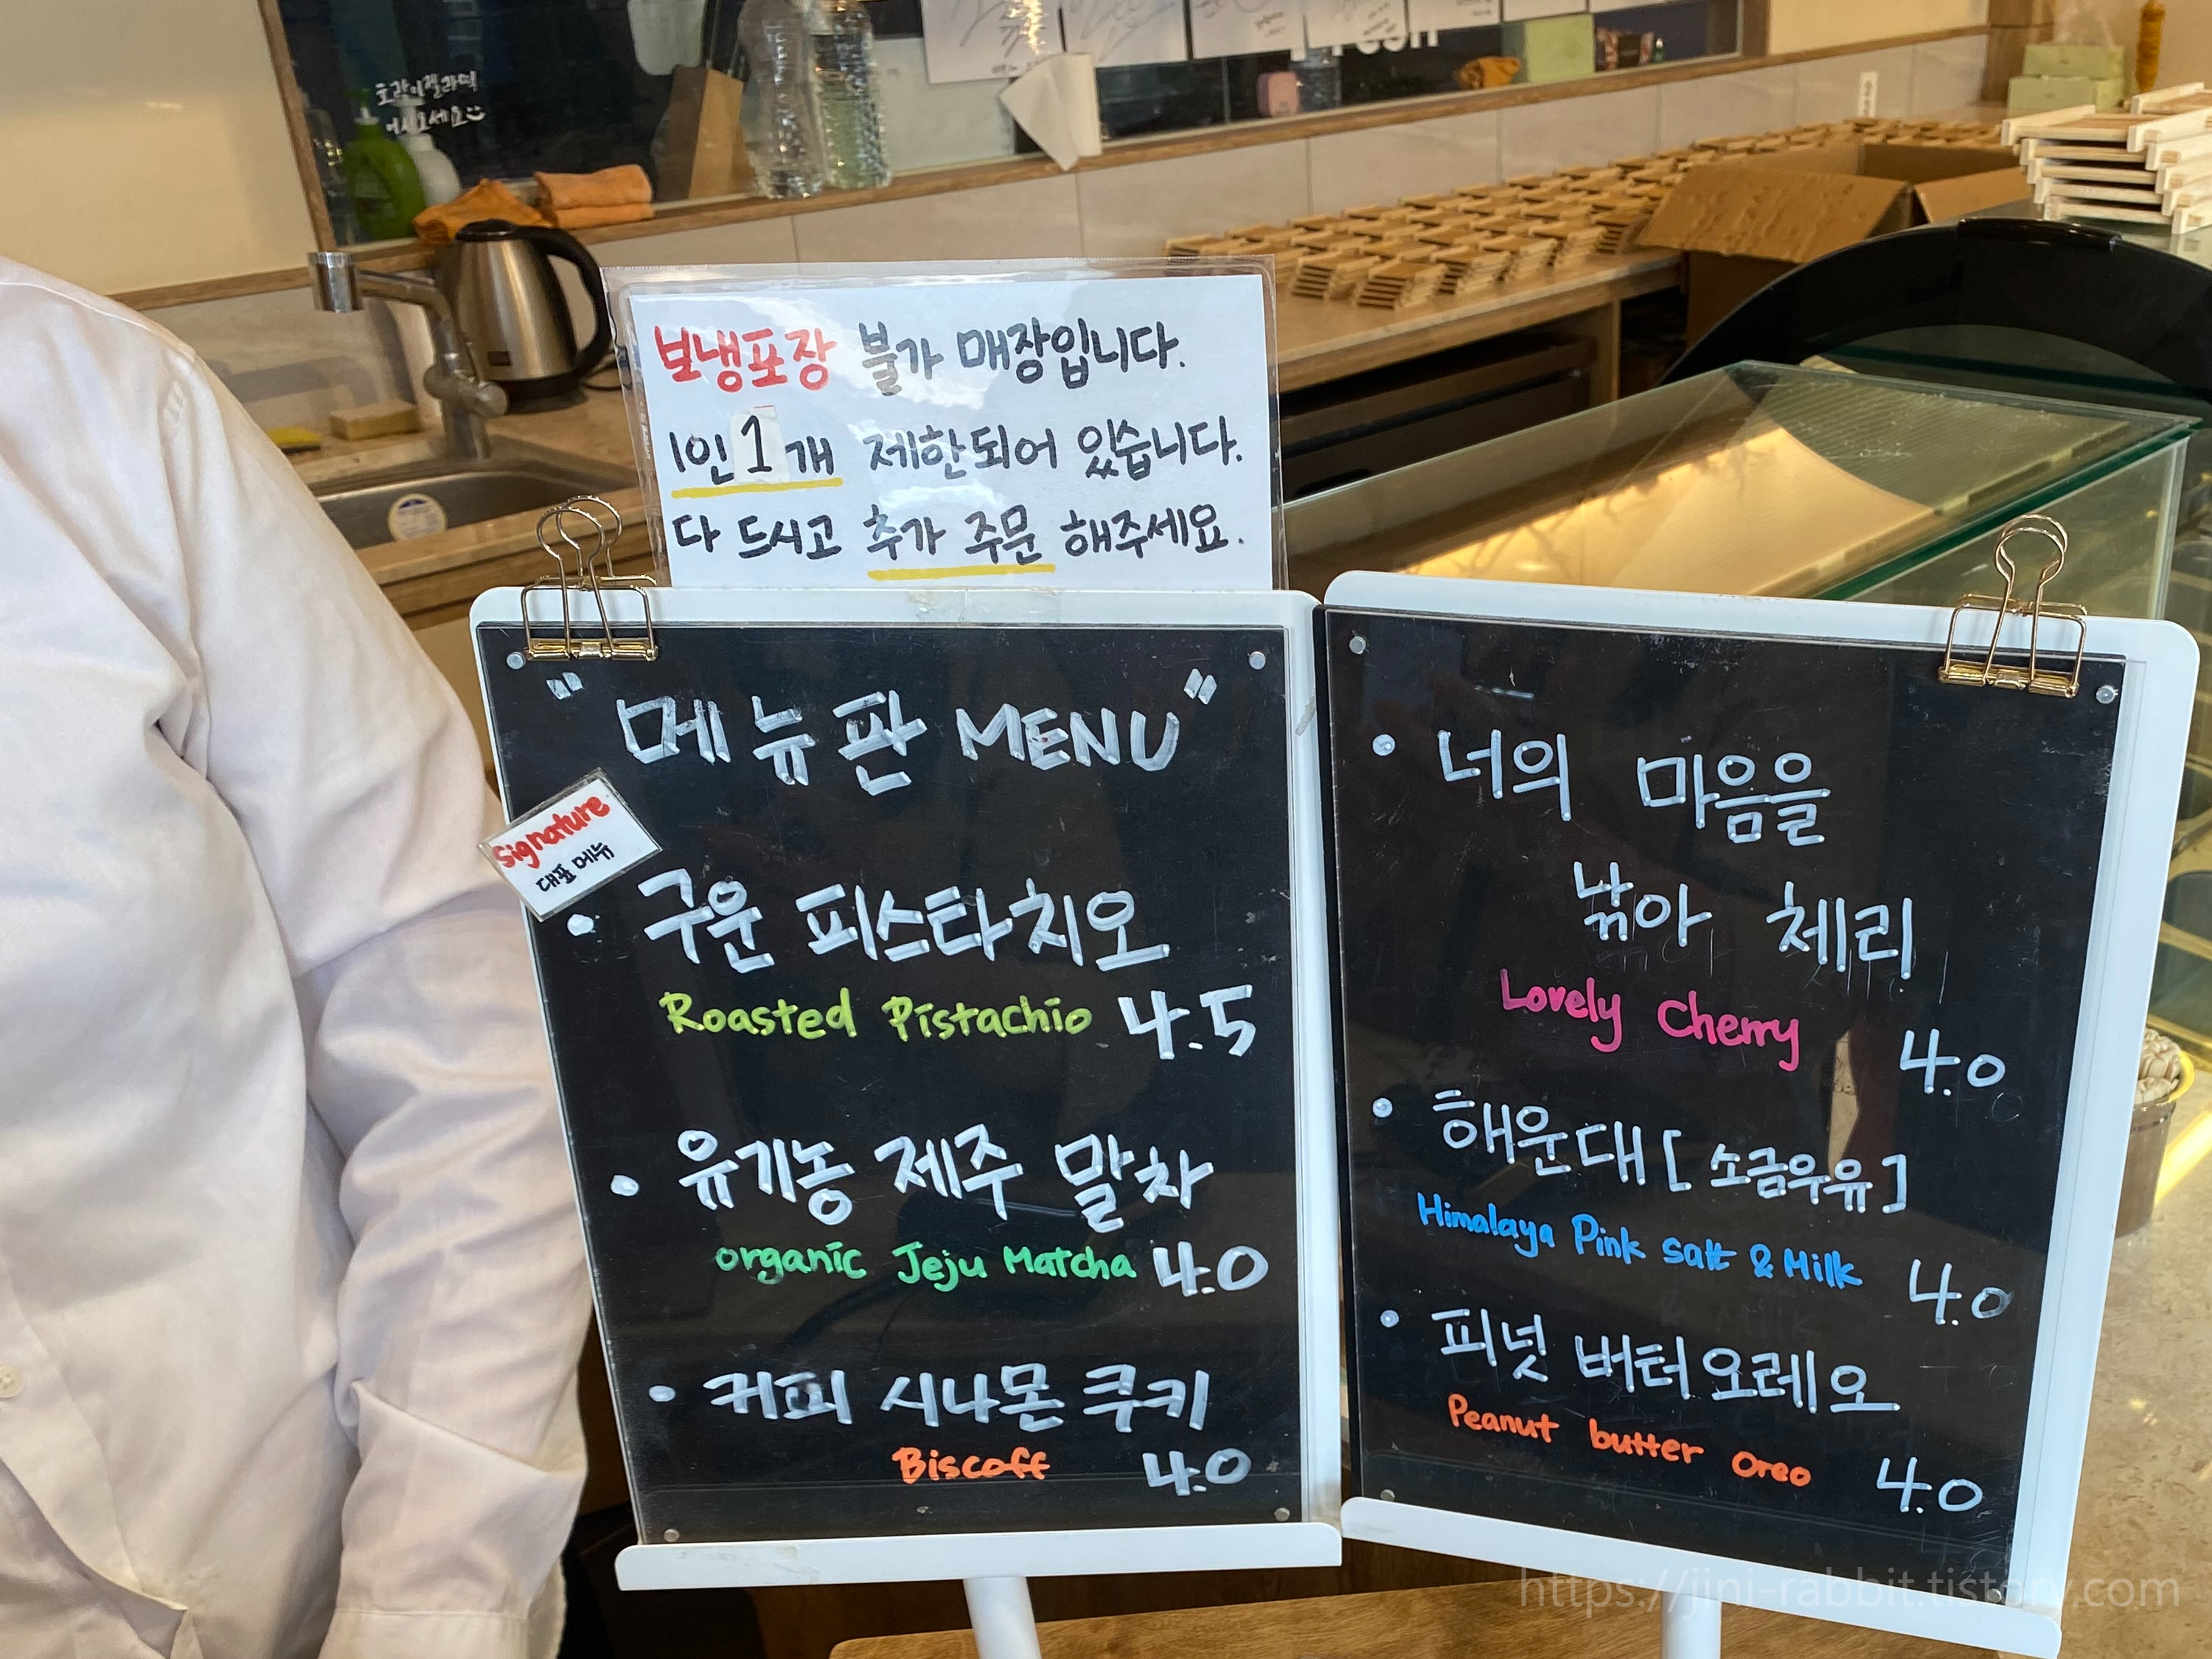 호랑이젤라떡
어서오세요
보냉포장 불가 매장입니다.
1인 1개 제한되어 있습니다.
다 드시고 추가 주문 해주세요.
"메뉴판 MENU"
Signature
대표 메뉴
• 구운 피스타치오
Roasted Pistachio 4.5
• 유기농 제주 말차
organic Jeju Matcha 4.0
• 커피 시나몬 쿠키
Biscoff 4.0
• 너의 마음을
낚아 체리
Lovely Cherry
4.0
• 해운대 [소금우유]
Himalaya Pink Salt & Milk
4.0
• 피넛 버터 오레오
Peanut butter oreo
4.0
https://jini-rabbit.tistory.com